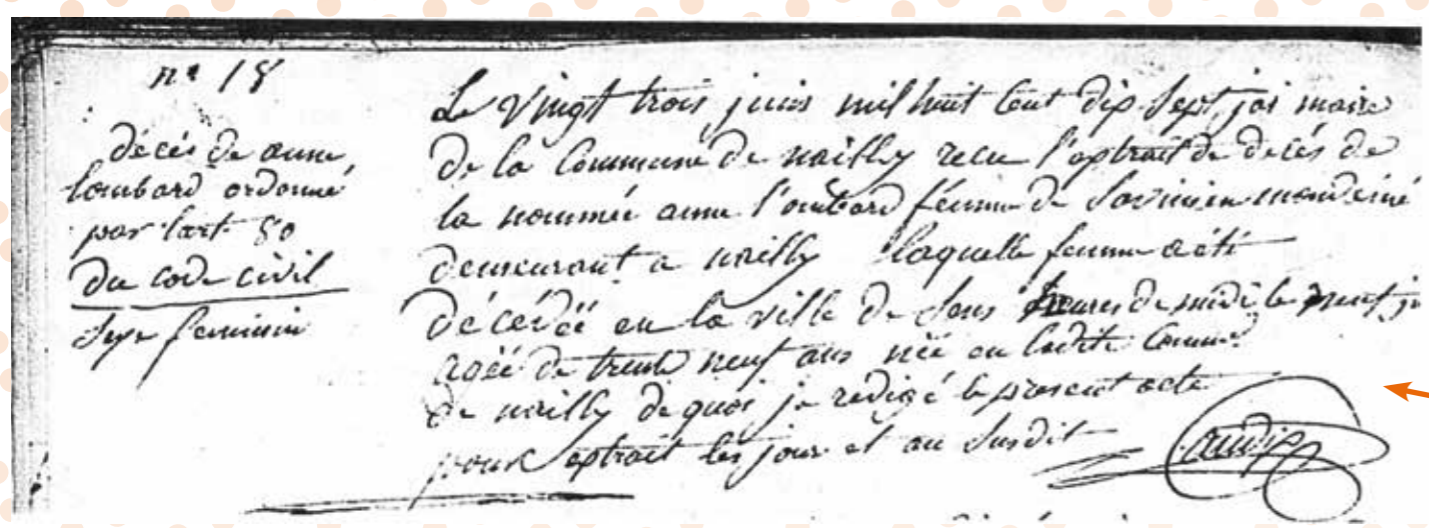 n° 18
décès de anne
lombard ordonné
par lart 80
du code civil
Sexe feminin
Le vingt trois juin mil huit Cent dix Sept, jai maire
De la Commune de nailly recu l'extrait de décés de
la nommée anne l'ombard fémme de Savinien
demeurant a nailly laquelle femme a été
décédée en la ville de Sens heures de midi le
agée de trente neuf ans née en Ladite Comme
de nailly de quoi je redigé le present acte
pour extrait les jour et an Susdit